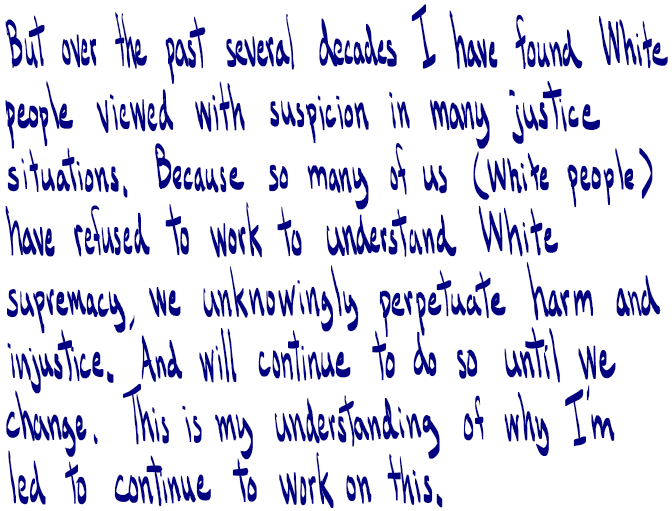 But over the past several decades I have found White
people viewed with suspicion in many justice
situations. Because so many of us (White people)
have refused to work to understand White
supremacy, we unknowingly perpetuate harm and
injustice. And will continue to do so until we
change. This is my understanding of why I'm
led to continue to work on this.